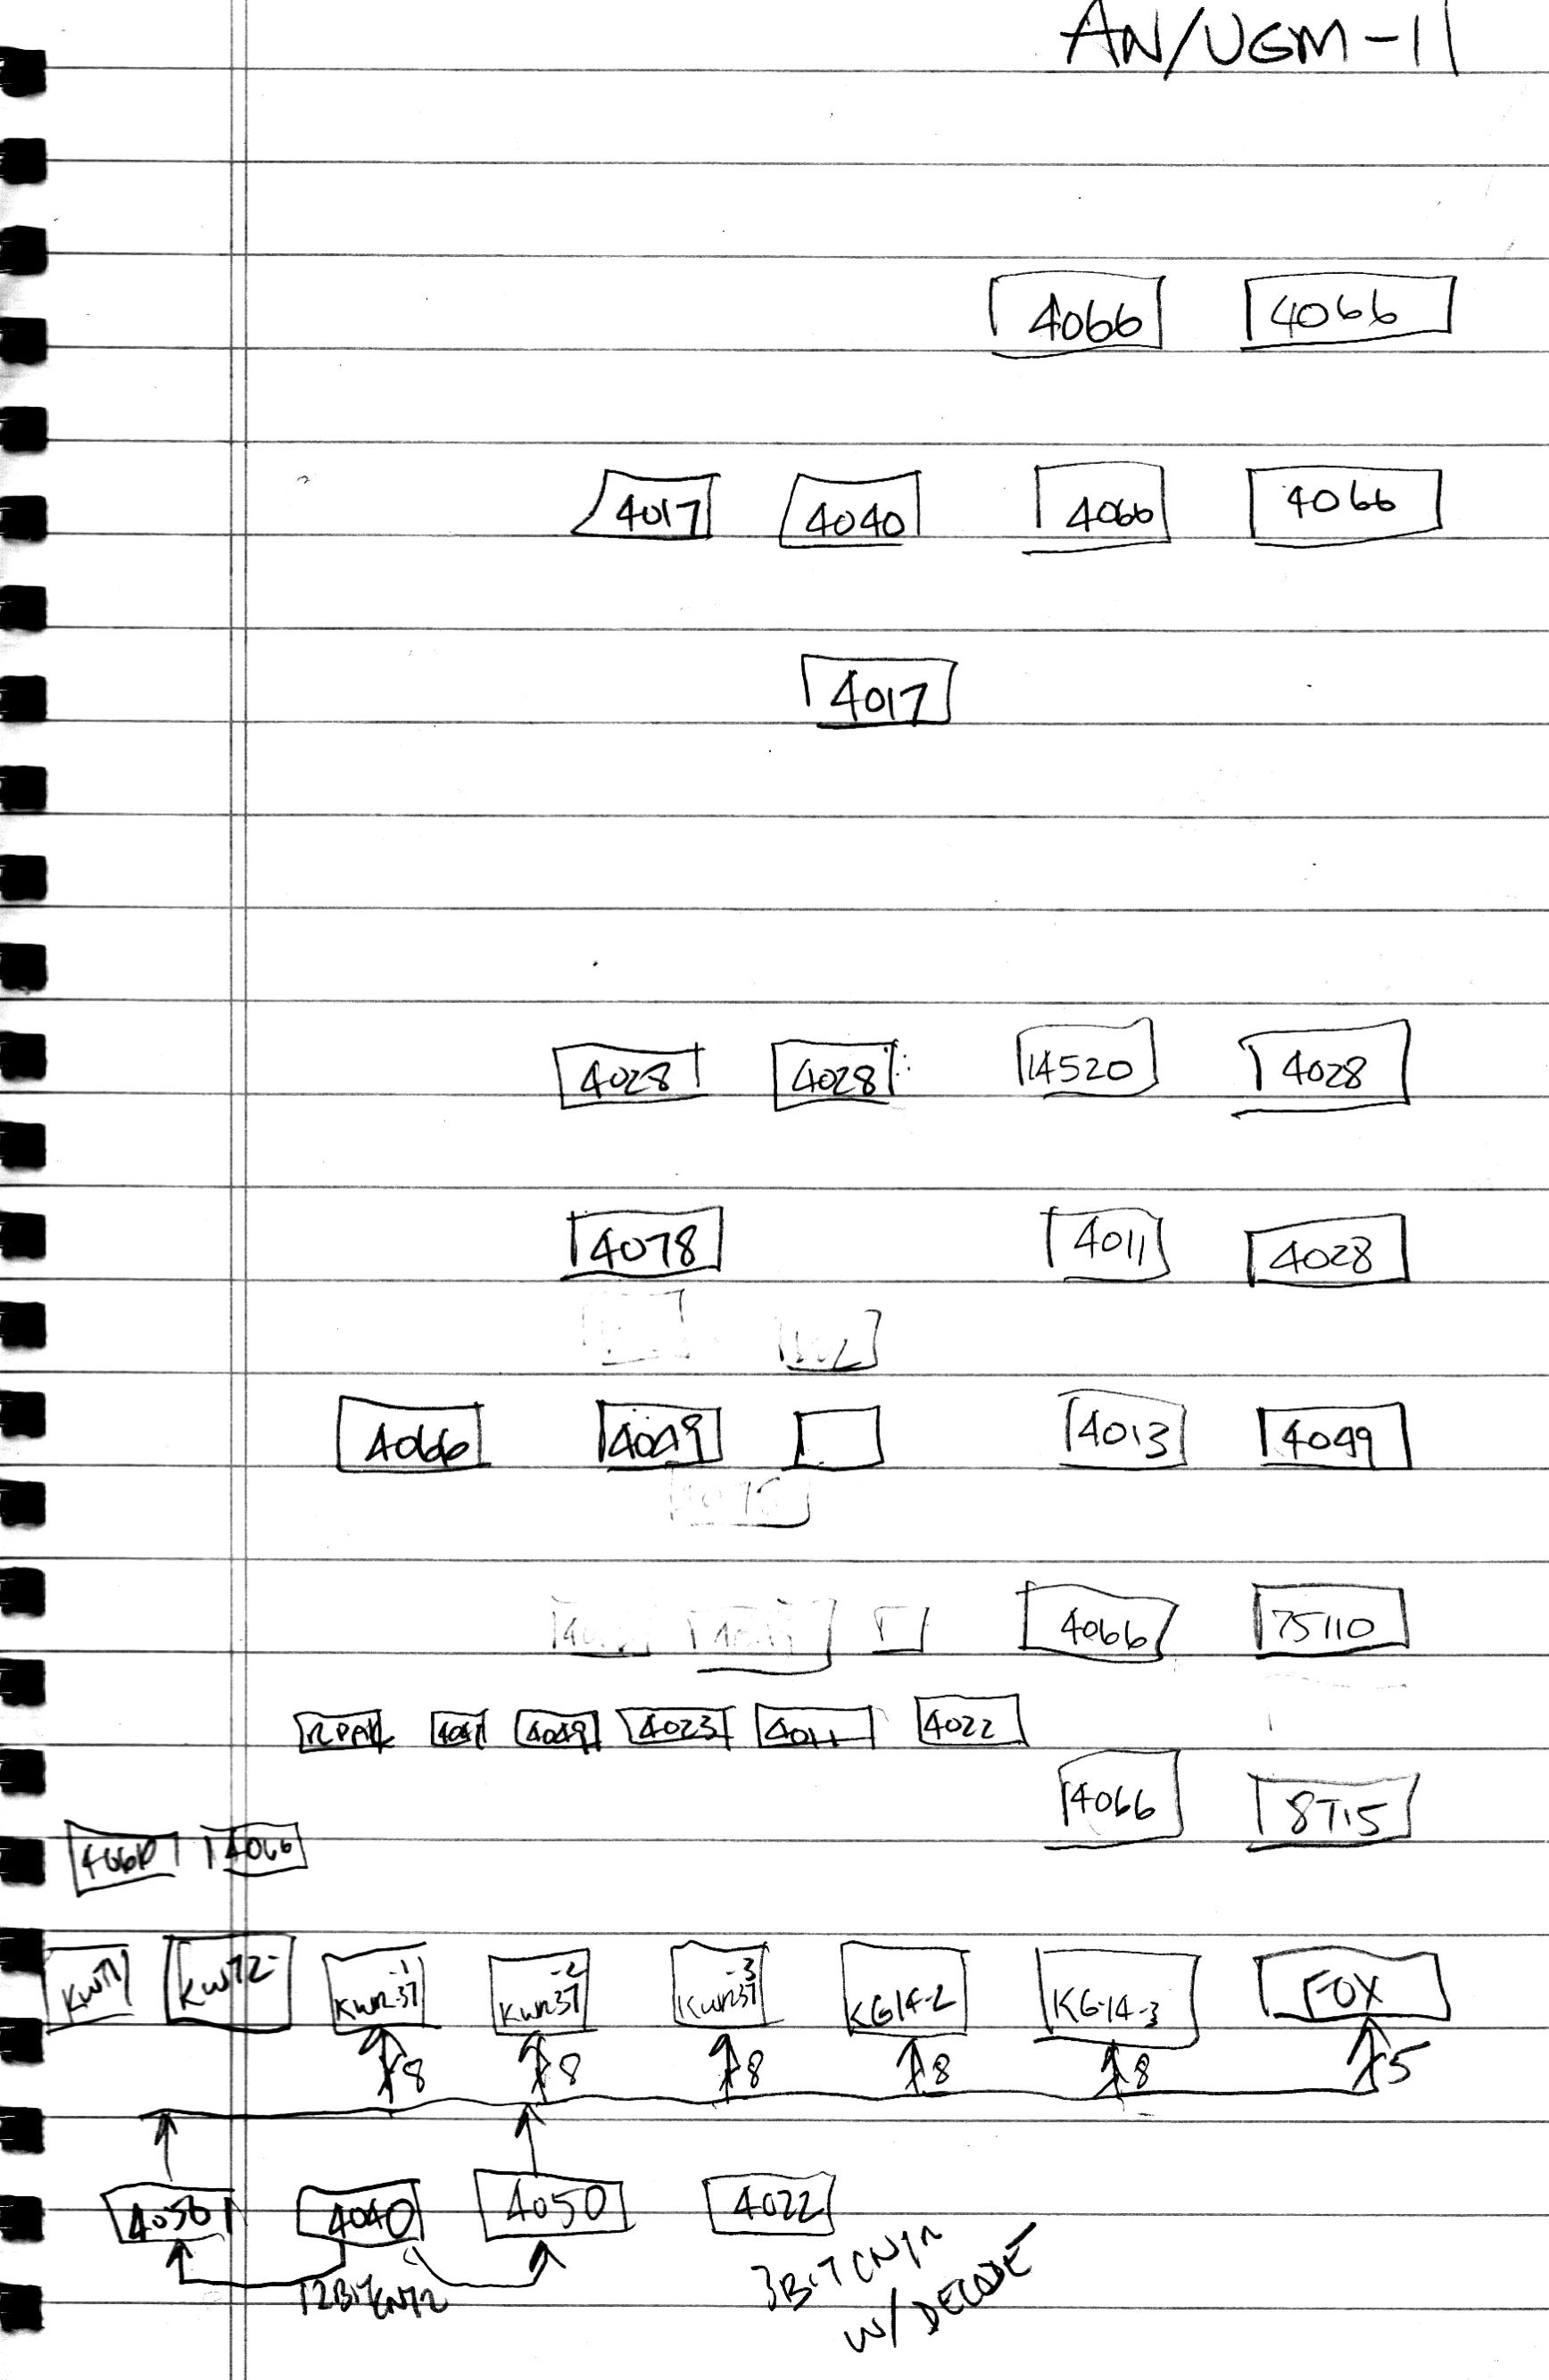 AN/UGM-11
4066 4066
4017 4040 4066 4066
4017
4028 4028 14520 4028
4078 4011 4028
4066 4049 4013 4049
4066 75110
RPAK 4049 4023 4011 4022
4066 8T15
4066 4066
KWT1 KWT2 KWR37-1 KWR37-2 KWR37-3 KG14-2 KG-14-3 FOX
8 8 8 8 8 5
4050 4040 4050 4022
12BITCNTR 3BITCNTR
W/DECODE